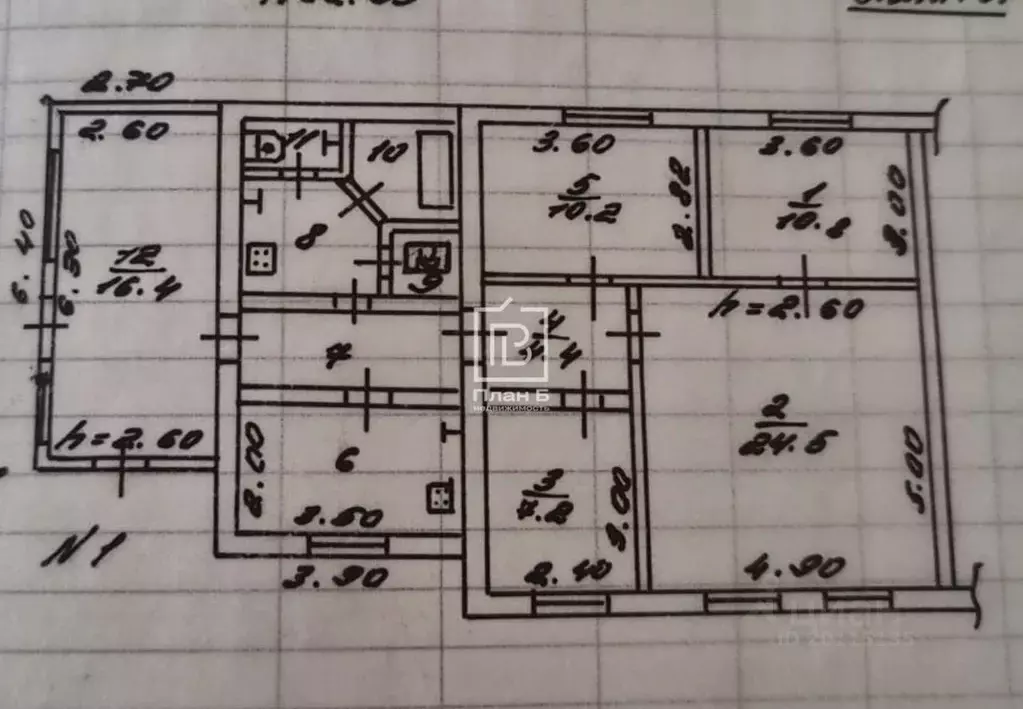 2.70
2.60
11
10
3.60
3.60
5
10.2
2.82
1
10.8
3.00
6.40
6.30
12
16.4
8
9
h=2.60
4
4.4
7
План Б
недвижимость
h=2.60
2.00
6
2
24.5
5.00
3
7.2
3.00
3.60
2.40
4.90
N1
3.90